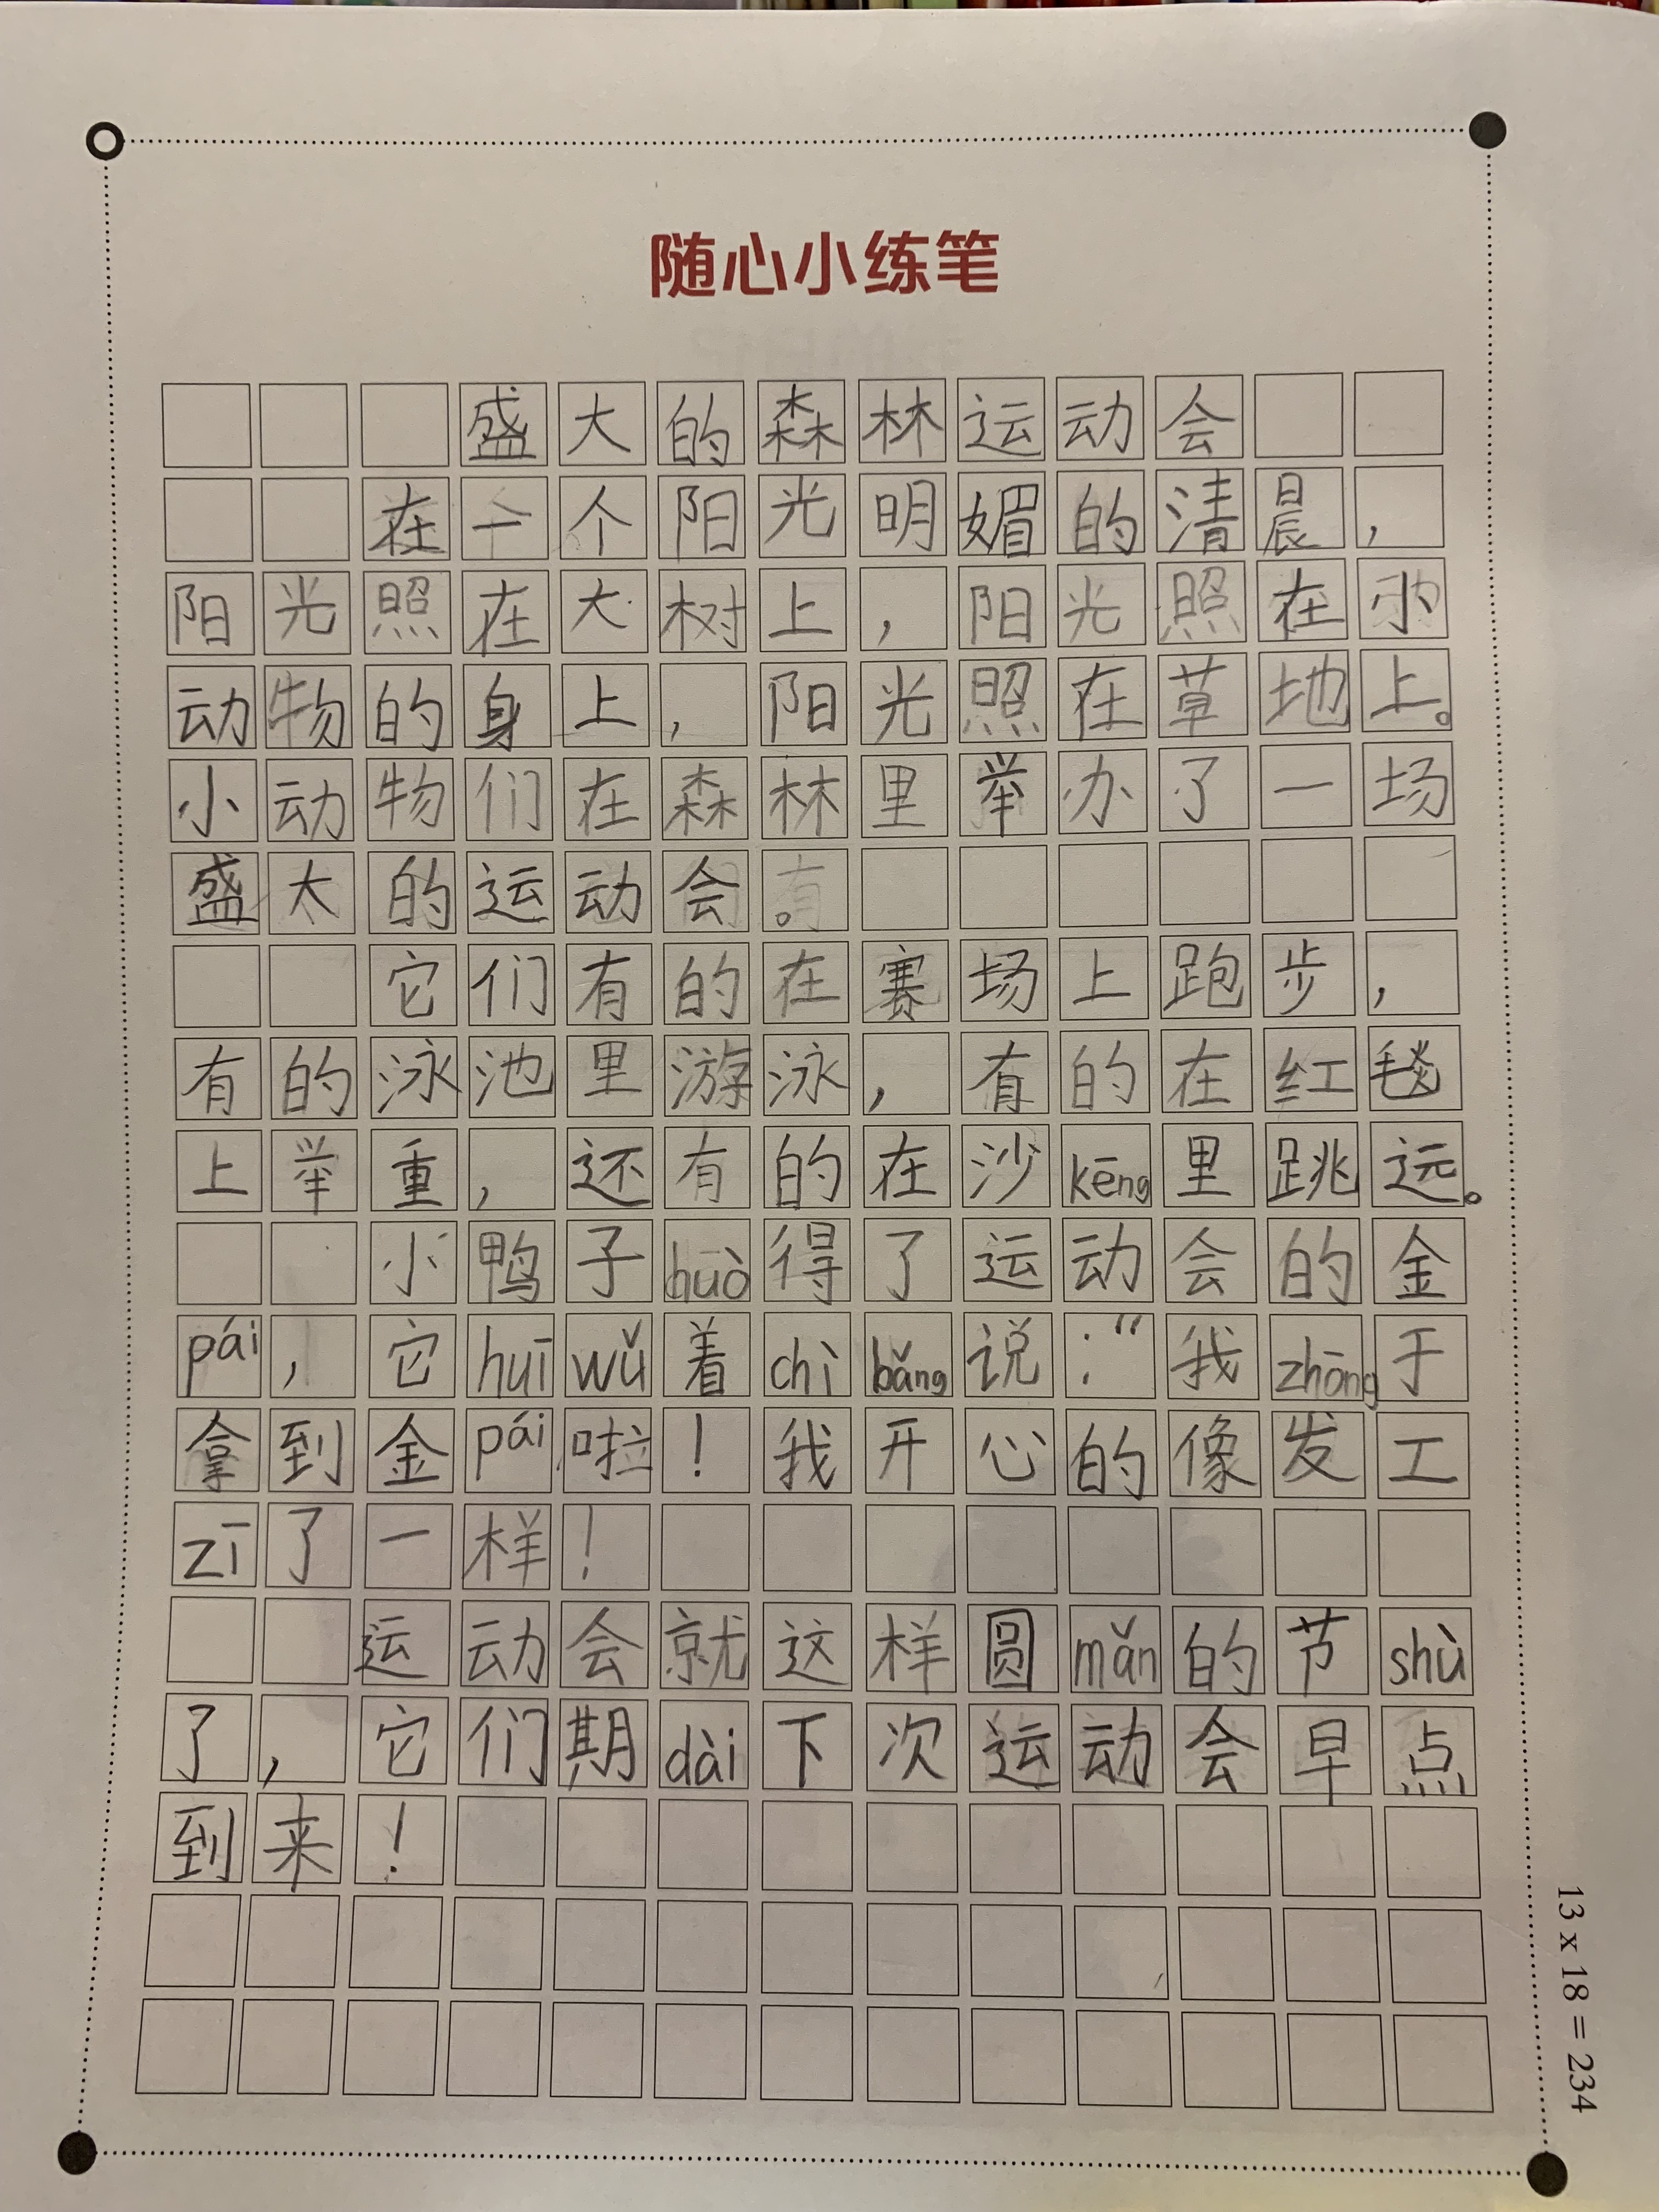 随心小练笔
盛大的森林运动会
在一个阳光明媚的清晨，
阳光照在大树上，阳光照在小
动物的身上，阳光照在草地上。
小动物们在森林里举办了一场
盛大的运动会。
它们有的在赛场上跑步，
有的泳池里游泳，有的在红毯
上举重，还有的在沙kēng里跳远。
小鸭子huò得了运动会的金
pái，它huīwǔ着chìbǎng说：“我zhōng于
拿到金pái啦！我开心的像发工
zī了一样！
运动会就这样圆mǎn的节shù
了，它们期dài下次运动会早点
到来！
13 x 18 = 234